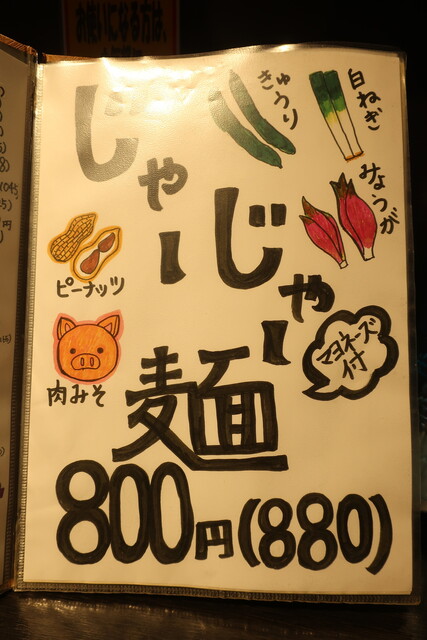 お使いになる方は、
じゃー
じゃー
麺
きゅうり
白ねぎ
みょうが
ピーナッツ
肉みそ
マヨネーズ
付
800円(880)